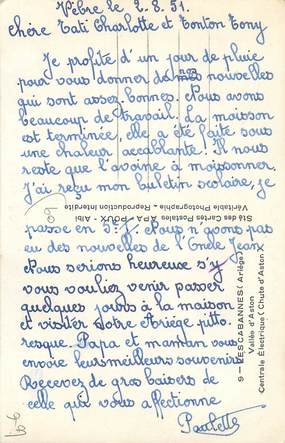 Vèbre le 2.8.51.
Chère Tati Charlotte et Tonton Tony
Je profite d'un jour de pluie
pour vous donner de nos nouvelles
qui sont assez bonnes. Nous avons
beaucoup de travail. La moisson
est terminée, elle a été faite sous
une chaleur accablante! Il nous
reste que l'avoine à moissonner.
J'ai reçu mon buletin scolaire, je
passe en 5e! Nous n'avons pas
eu des nouvelles de l'Oncle Jean
Nous serions heureuse s'y
vous vouliez venir passer
quelques jours à la maison
et visiter notre Ariège pitto-
resque. Papa et maman vous
envoie leurs meilleurs souvenirs
Recevez de gros baisers de
celle qui vous affectionne
Paulette
Sté des Cartes Postales A.P.A. POUX - Albi
Véritable Photographie - Reproduction Interdite
9 - LES CABANNES (Ariège)
Vallée d'Aston
Centrale Électrique (Chute d'Aston)